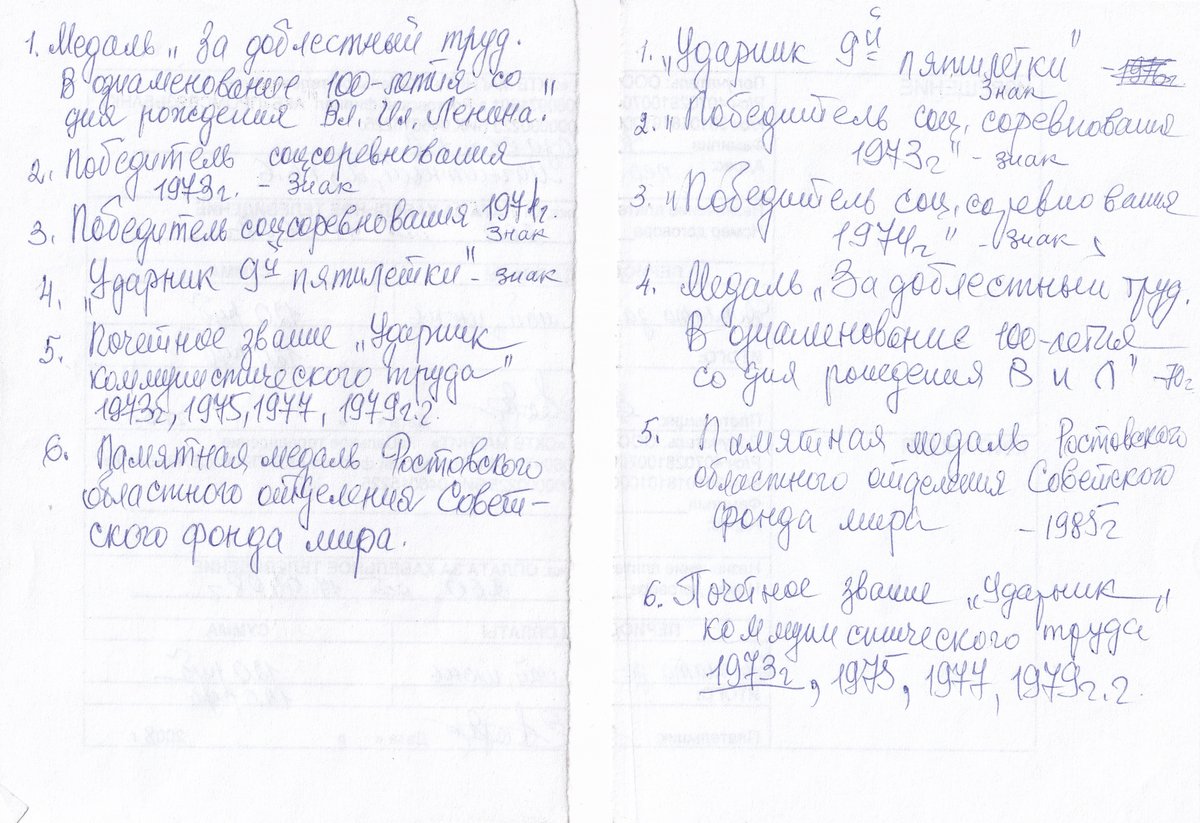 1. Медаль „За доблестный труд.
В ознаменование 100-летия со
дня рождения Вл. Ил. Ленина."
2. Победитель соцсоревнования
1973г. - Знак
3. Победитель соцсоревнования 1974г.
Знак
4. „Ударник 9й пятилетки" - знак
5. Почетное звание „Ударник
коммунистического труда"
1973г, 1975, 1977, 1979г.г.
6. Памятная медаль Ростовского
областного отделения Совет-
ского фонда мира.
1. „Ударник 9й пятилетки" - 1976г
Знак
2. „Победитель соц. соревнования
1973г" - знак
3. „Победитель соц. соревнования
1974г" - знак
4. Медаль „За доблестный труд.
В ознаменование 100-летия
со дня рождения В И Л" - 70г
5. Памятная медаль Ростовского
областного отделения Советского
фонда мира - 1985г
6. Почетное звание „Ударник
коммунистического труда"
1973г, 1975, 1977, 1979г.г.